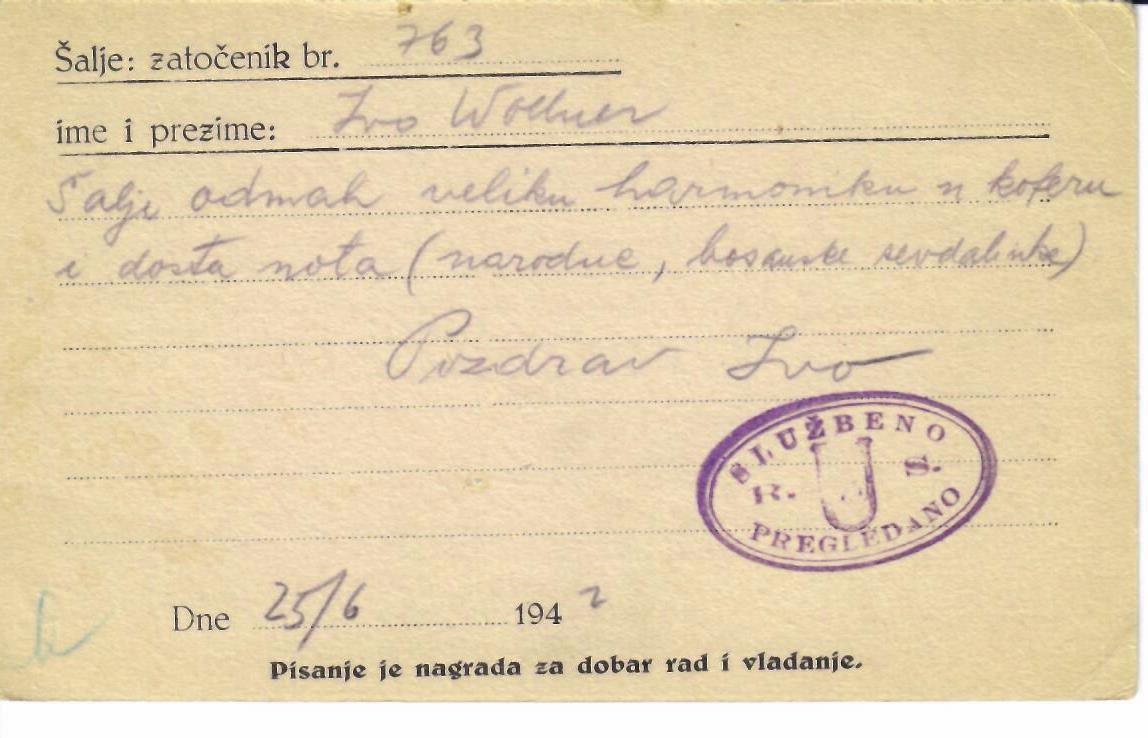 Šalje: zatočenik br. 763
ime i prezime: Ivo Wollner
Šalji odmah veliku harmoniku u koferu
i dosta nota (narodne, bosanske sevdalinke)
Pozdrav Ivo
SLUŽBENO
R. U S.
PREGLEDANO
Dne 25/6 1942
Pisanje je nagrada za dobar rad i vladanje.